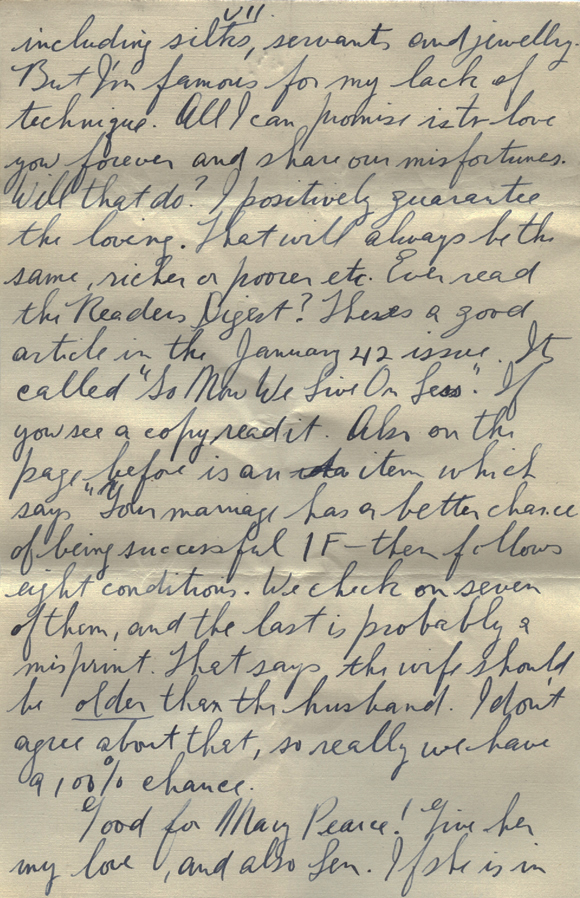 VII
including silks, servants and jewellry.
But I'm famous for my lack of
technique. All I can promise is to love
you forever and share our misfortunes.
Will that do? I positively guarantee
the loving. That will always be the
same, richer or poorer etc. Ever read
the Readers Digest? Theres a good
article in the January 42 issue. Its
called "So Now We Live On Less". If
you see a copy, read it. Also on the
page before is an item which
says "Your marriage has a better chance
of being successful IF - then follows
eight conditions. We check on seven
of them, and the last is probably a
misprint. That says the wife should
be older than the husband. I don't
agree about that, so really we have
a 100% chance.
Good for Mary Pearce! Give her
my love, and also Len. If she is in